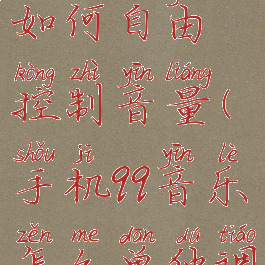 如何自由
kòng zhì yīn liáng
控制音量(
shǒu jī yīn lè
手机99音乐
zěn me dān dú tiáo
怎么单独调